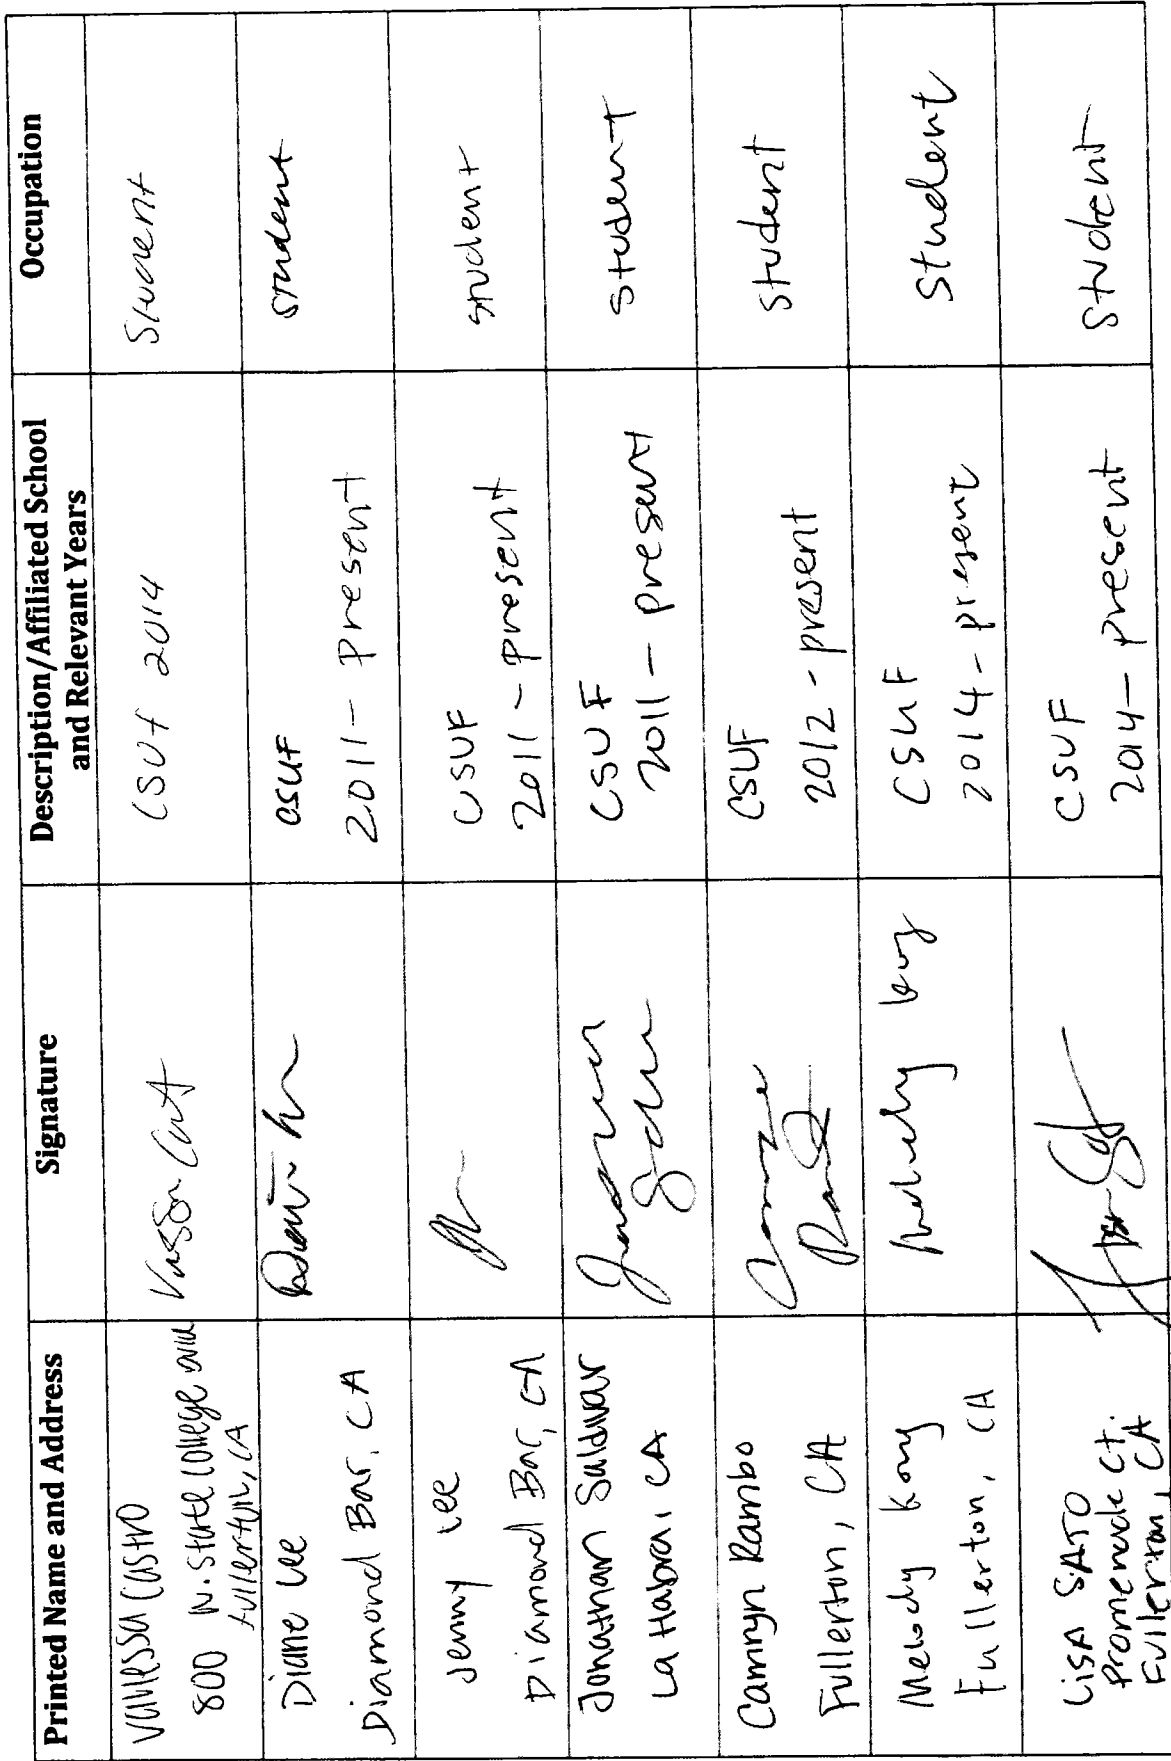 Printed Name and Address
Signature
Description/Affiliated School
and Relevant Years
Occupation
Vanessa Castro
800 N. State College
Fullerton, CA
CSUF 2014
Student
Diane Lee
Diamond Bar, CA
CSUF
2011 - Present
student
Jenny Lee
Diamond Bar, CA
CSUF
2011 - present
student
Jonathan Saldivar
La Habra, CA
CSUF
2011 - present
student
Camryn Rambo
Fullerton, CA
CSUF
2012 - present
student
Melody Kong
Fullerton, CA
Melody Kong
CSUF
2014 - present
student
Lisa SATO
Promenade Ct.
Fullerton, CA
CSUF
2014 - present
student